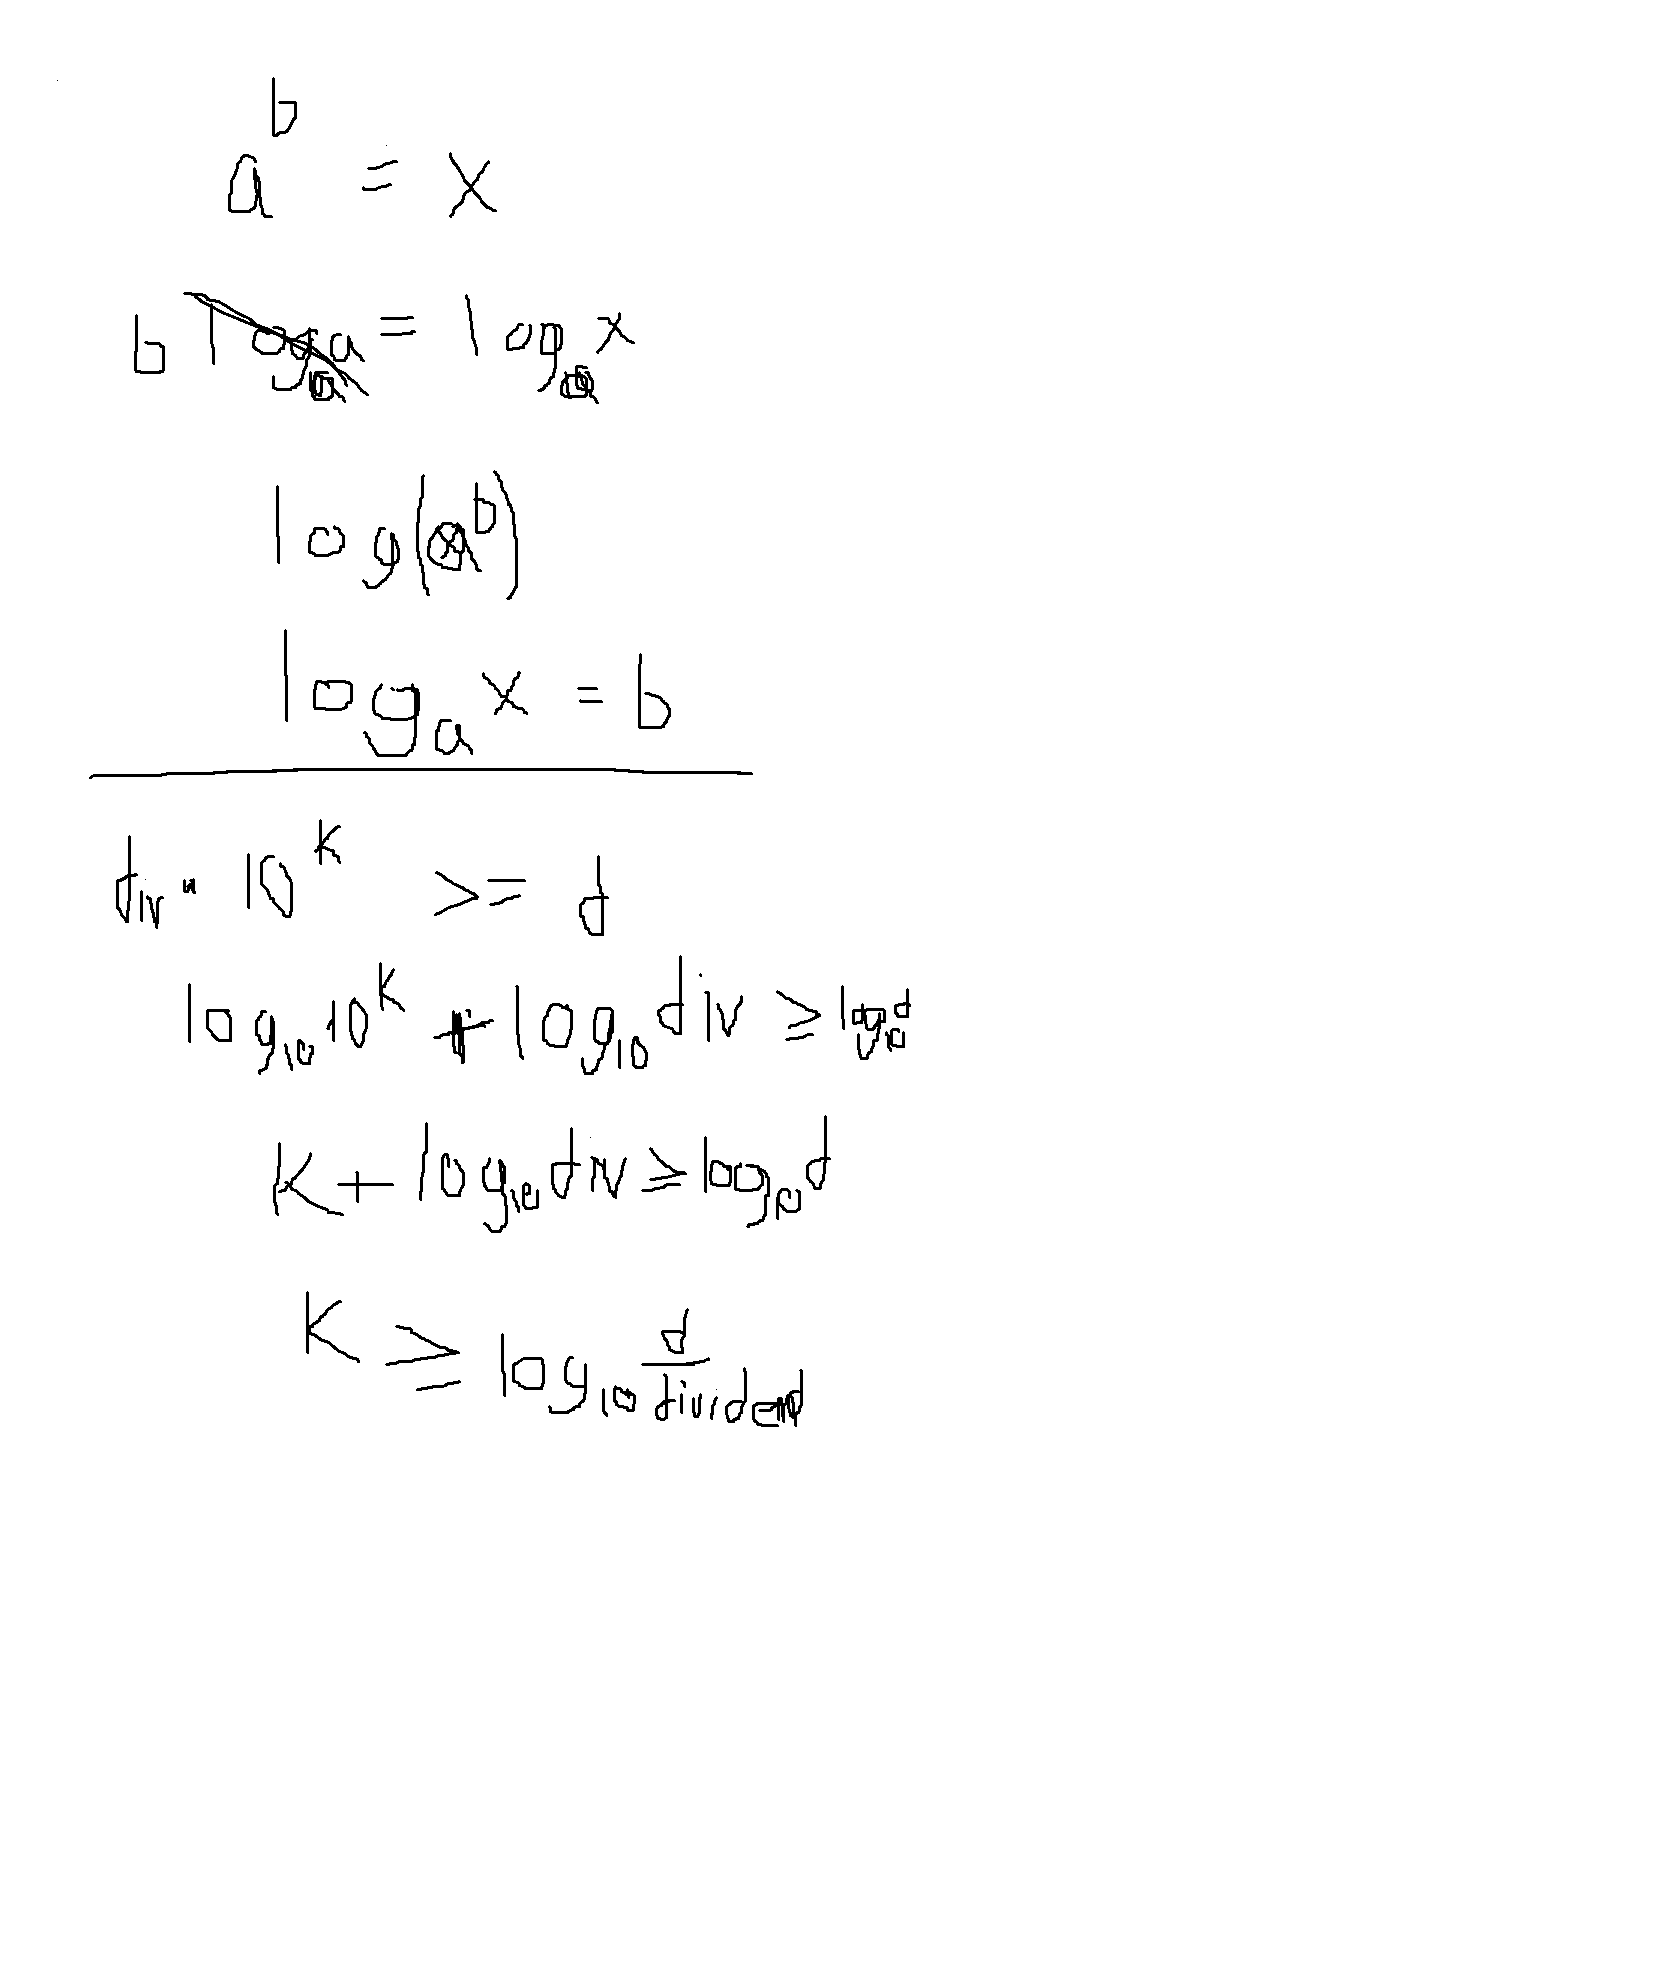 a^b = x
b log_a a = log_a x
log(a^b)
log_a x = b
div · 10^k >= d
log_10 10^k + log_10 div ≥ log_10 d
k + log_10 div ≥ log_10 d
k ≥ log_10 d/dividend